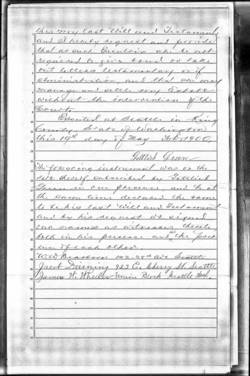 this my last Will and Testament
and I hereby request and provide
that as such Executrix she be not
required to give bond or take
out letters testamentary or of
administration, and that she may
manage and settle my Estate
without the intervention of the
Courts.
Executed at Seattle in King
County, State of Washington
this 19th day of May
Gottlieb
The foregoing instrument was on the
date thereof subscribed by Gottlieb
in our presence and he at
the same time declared the same
to be his last Will and Testament
and by his request we signed
our names as witnesses thereto
both in his presence and the presence
of each other.
Seattle
923 E. Cherry St. Seattle
James W. Wheeler Union Block Seattle